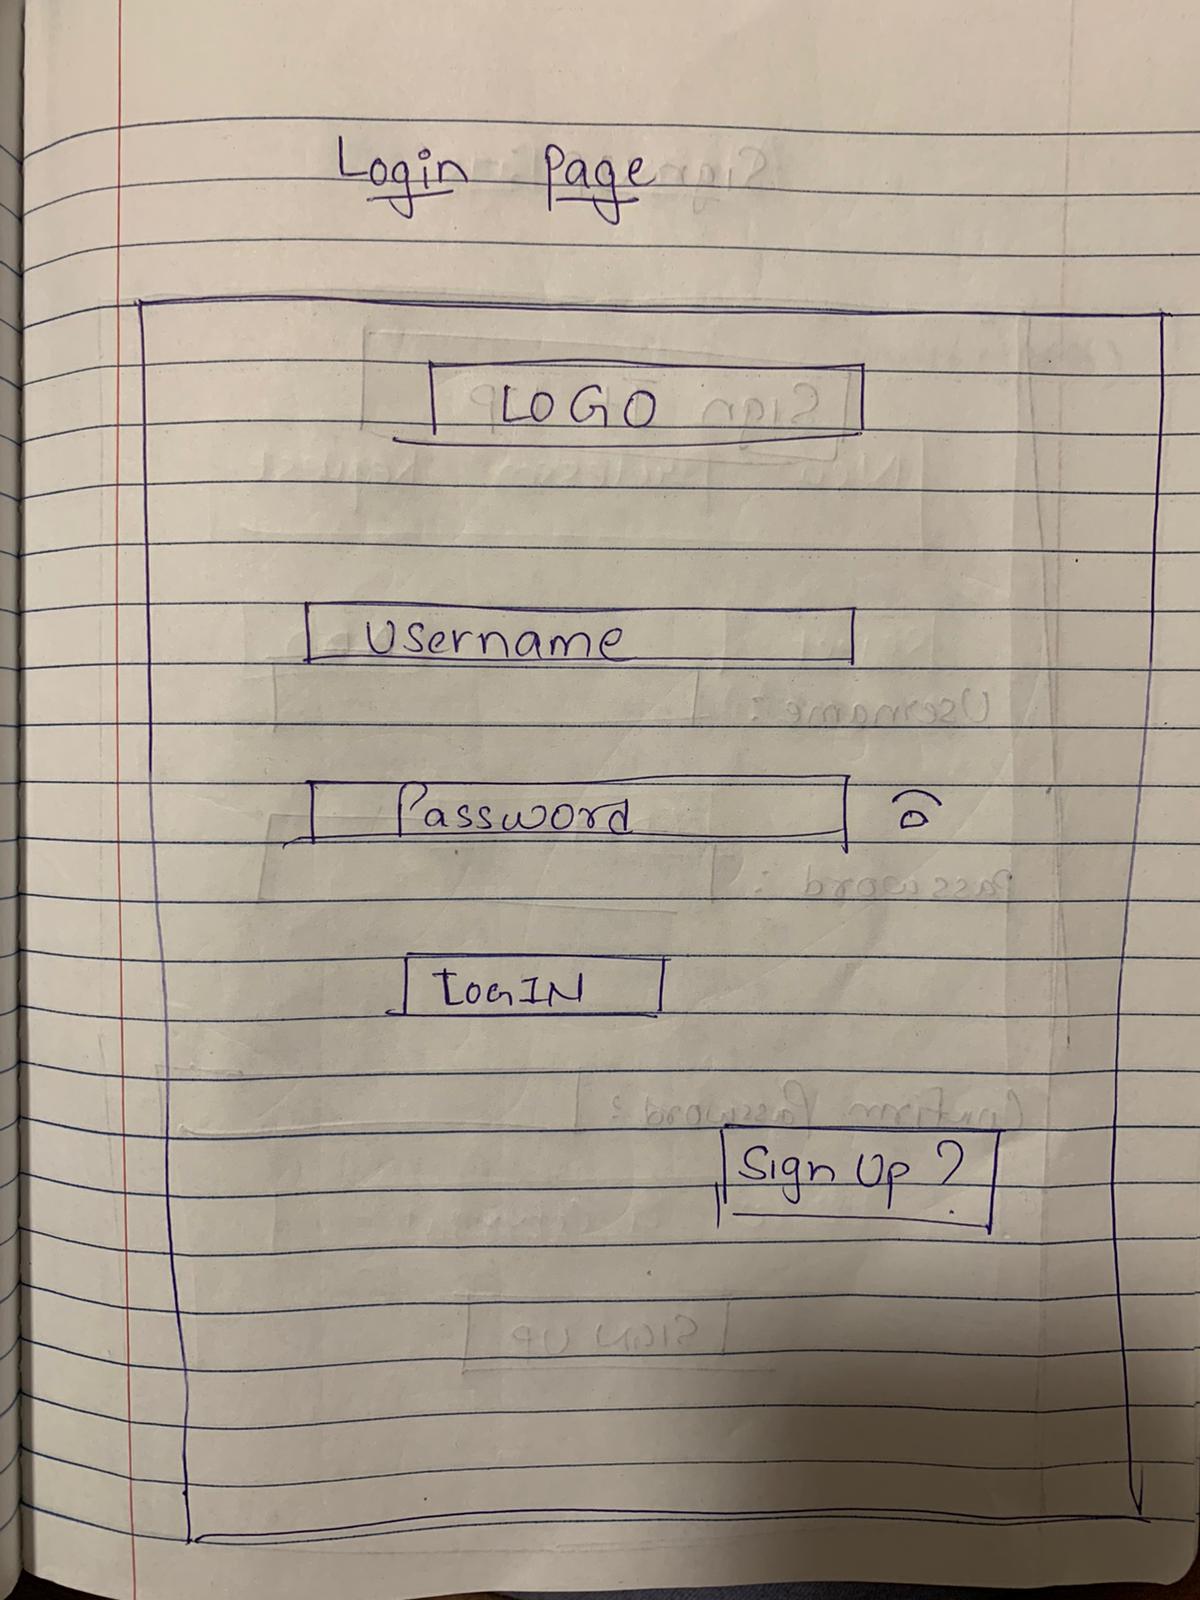 Login Page
LOGO
Username
Password
LOGIN
Sign Up ?